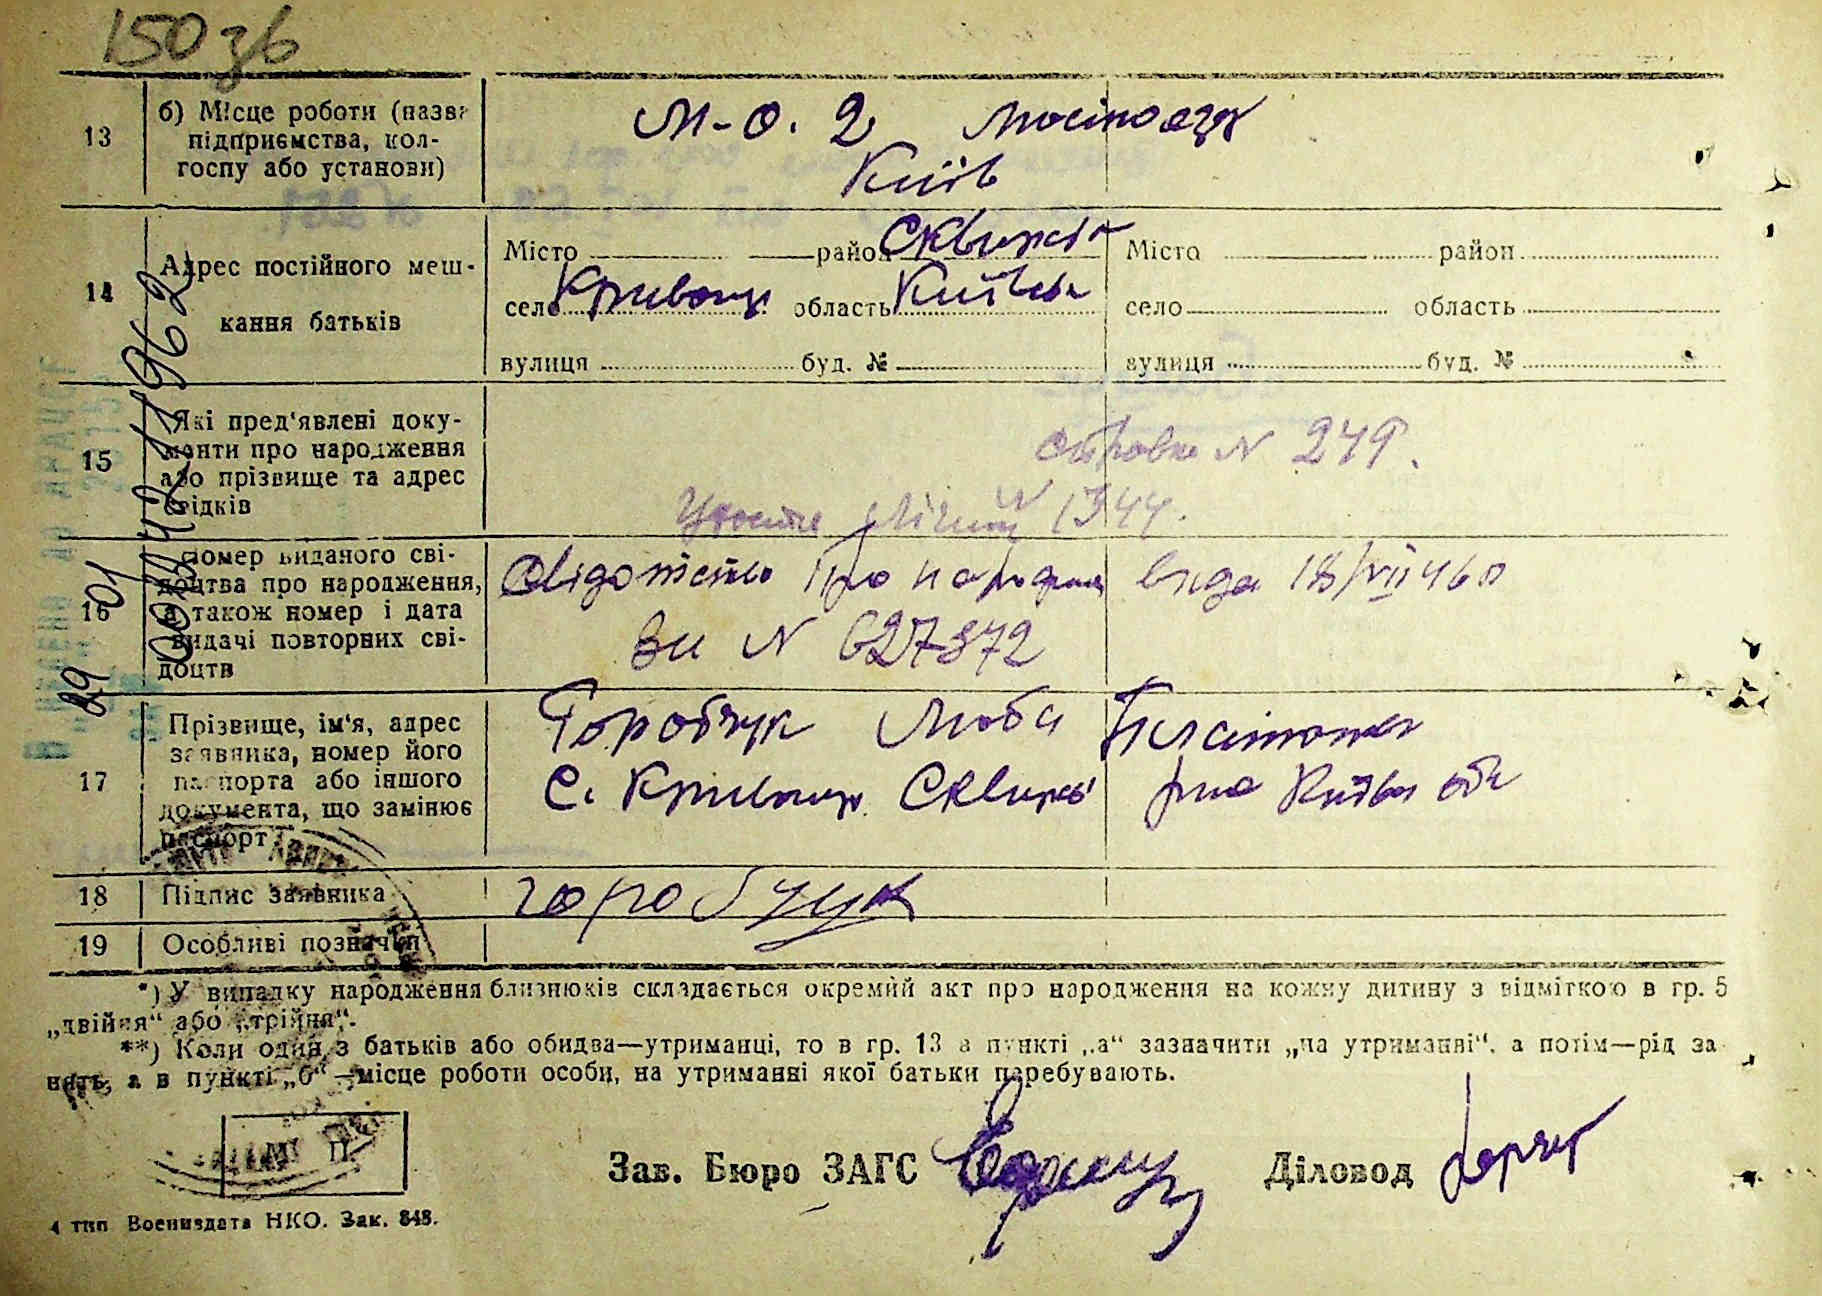 150 зв
13
б) Місце роботи (назва
підприємства, кол-
госпу або установи)
М-О. 2
Київ
14
Адрес постійного меш-
кання батьків
Місто район Сквирськ
село Кривошиї область Київськ
вулиця буд. №
Місто район
село область
вулиця буд. №
15
Які пред'явлені доку-
менти про народження
або прізвище та адрес
свідків
№ 249.
№ 1344.
16
Номер виданого сві-
доцтва про народження,
а також номер і дата
видачі повторних сві-
доцтв
Свідотство про народжен вида 18/VII 46 р
№ 627372
17
Прізвище, ім'я, адрес
заявника, номер його
паспорта або іншого
документа, що замінює
паспорт
Горобчук Люба Платонов
С. Кривошиї Сквирс р-на Київск обл
18
Підпис заявника
горобчук
19
Особливі позначки
*) У випадку народження близнюків складається окремий акт про народження на кожну дитину з відміткою в гр. 5
„двійня“ або „трійня“.
**) Коли один з батьків або обидва—утриманці, то в гр. 13 в пункті „а“ зазначити „на утриманні“, а потім—рід за-
нять, а в пункті „б“—місце роботи особи, на утриманні якої батьки перебувають.
М. П.
Зав. Бюро ЗАГС
Діловод
4 тип Воениздата НКО. Зак. 848.